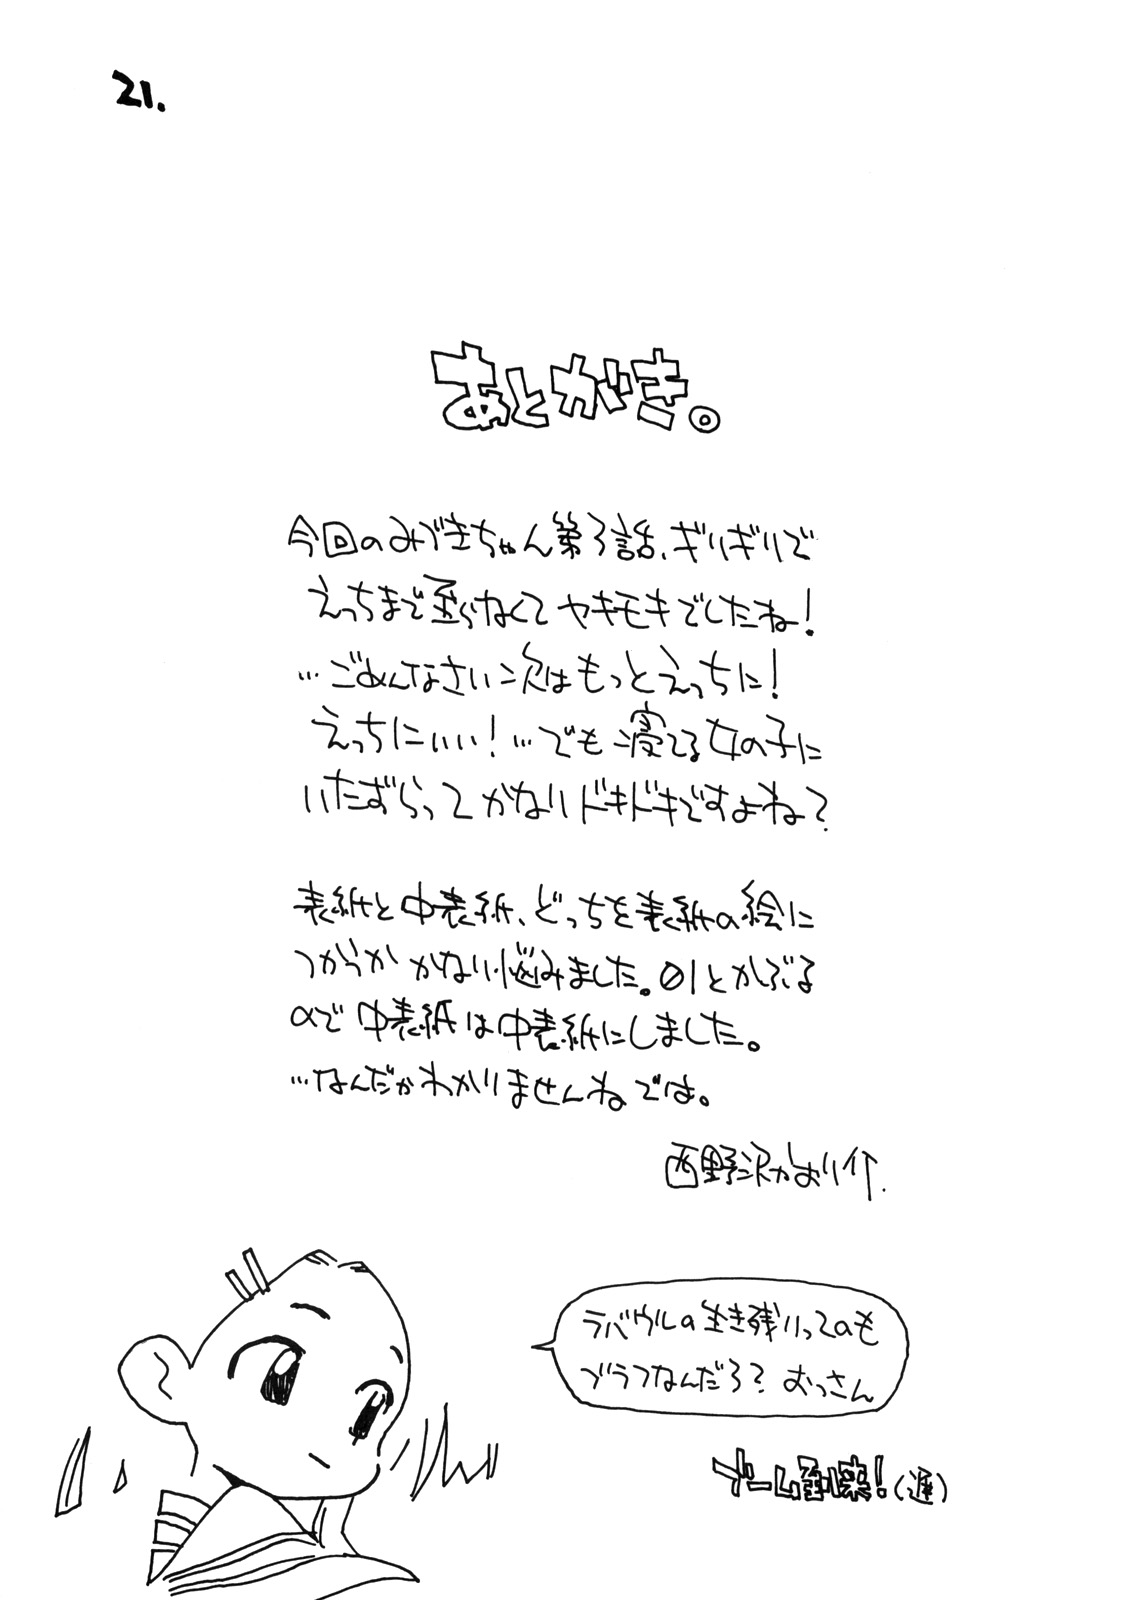 21.
あとがき。
今回のみずきちゃん第3話、ギリギリで
えっちまで至らなくてヤキモキでしたね!
…ごめんなさい次はもっとえっちに!
えっちにぃぃ!…でも寝てる女の子に
いたずらってかなりドキドキですよね?
表紙と中表紙、どっちを表紙の絵に
つかうかかなり悩みました。01とかぶる
ので中表紙は中表紙にしました。
…なんだかわかりませんねでは。
西野
ラバウルの生き残りってのも
ブラフなんだろ?おっさん
ブーム到来!(遅)